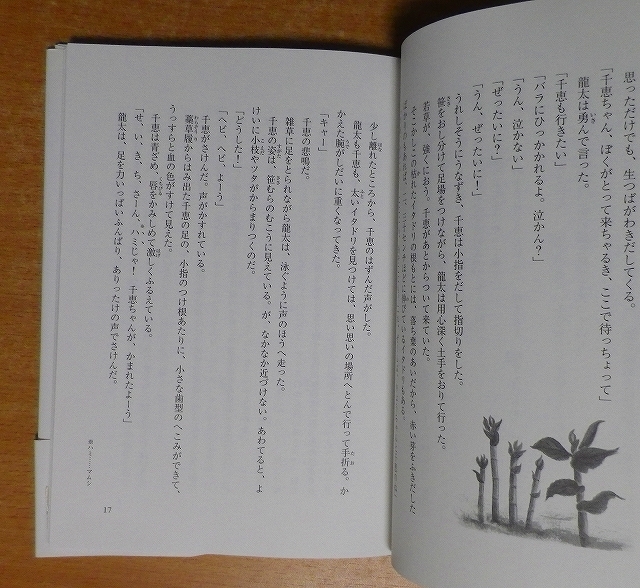 思っただけでも、生つばがわきだしてくる。
「千恵ちゃん、ぼくがとって来ちゃるき、ここで待っちょって」
龍太は勇んで言った。
「千恵も行きたい」
「バラにひっかかれるよ。泣かん？」
「うん、泣かない」
「ぜったいに？」
「うん、ぜったいに！」
うれしそうにうなずき、千恵は小指をだして指切りをした。
笹をおし分けて足場をつけながら、龍太は用心深く土手をおりて行った。
若草が、強くにおう。千恵があとからついて来ていた。
そこかしこの枯れたイタドリの根もとには、落ち葉のあいだから、赤い芽をふきだした
少し離れたところから、千恵のはずんだ声がした。
龍太も千恵も、太いイタドリを見つけては、思い思いの場所へとんで行って手折る。か
かえた腕がしだいに重くなってきた。
「キャー」
千恵の悲鳴だ。
雑草に足をとられながら龍太は、泳ぐように声のほうへ走った。
千恵の姿は、笹むらのむこうに見えている。が、なかなか近づけない。あわてると、よ
けいに小枝やツタがからまりつくのだ。
「どうした！」
「ヘビ、ヘビ、よーう」
千恵がさけんだ。声がかすれている。
藁草履からはみ出た千恵の足の、小指のつけ根あたりに、小さな歯型のへこみができて、
うっすらと血の色がすけて見えた。
千恵は青ざめ、唇をかみしめて激しくふるえている。
「せ、い、き、ち、さーん。ハミじゃ！　千恵ちゃんが、かまれたよーう」
龍太は、足を力いっぱいふんばり、ありったけの声でさけんだ。
※ハミ……マムシ
17